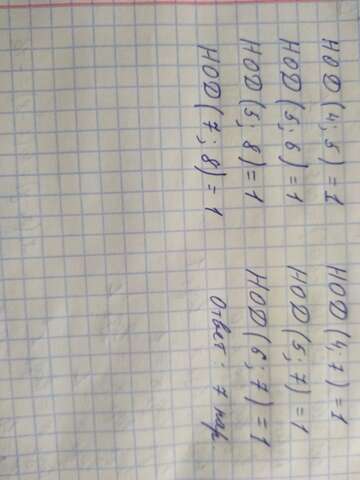 НОД (4; 5) = 1
НОД (5; 6) = 1
НОД (5; 8) = 1
НОД (7; 8) = 1
НОД (4; 7) = 1
НОД (5; 7) = 1
НОД (6; 7) = 1
Ответ: 7 пар